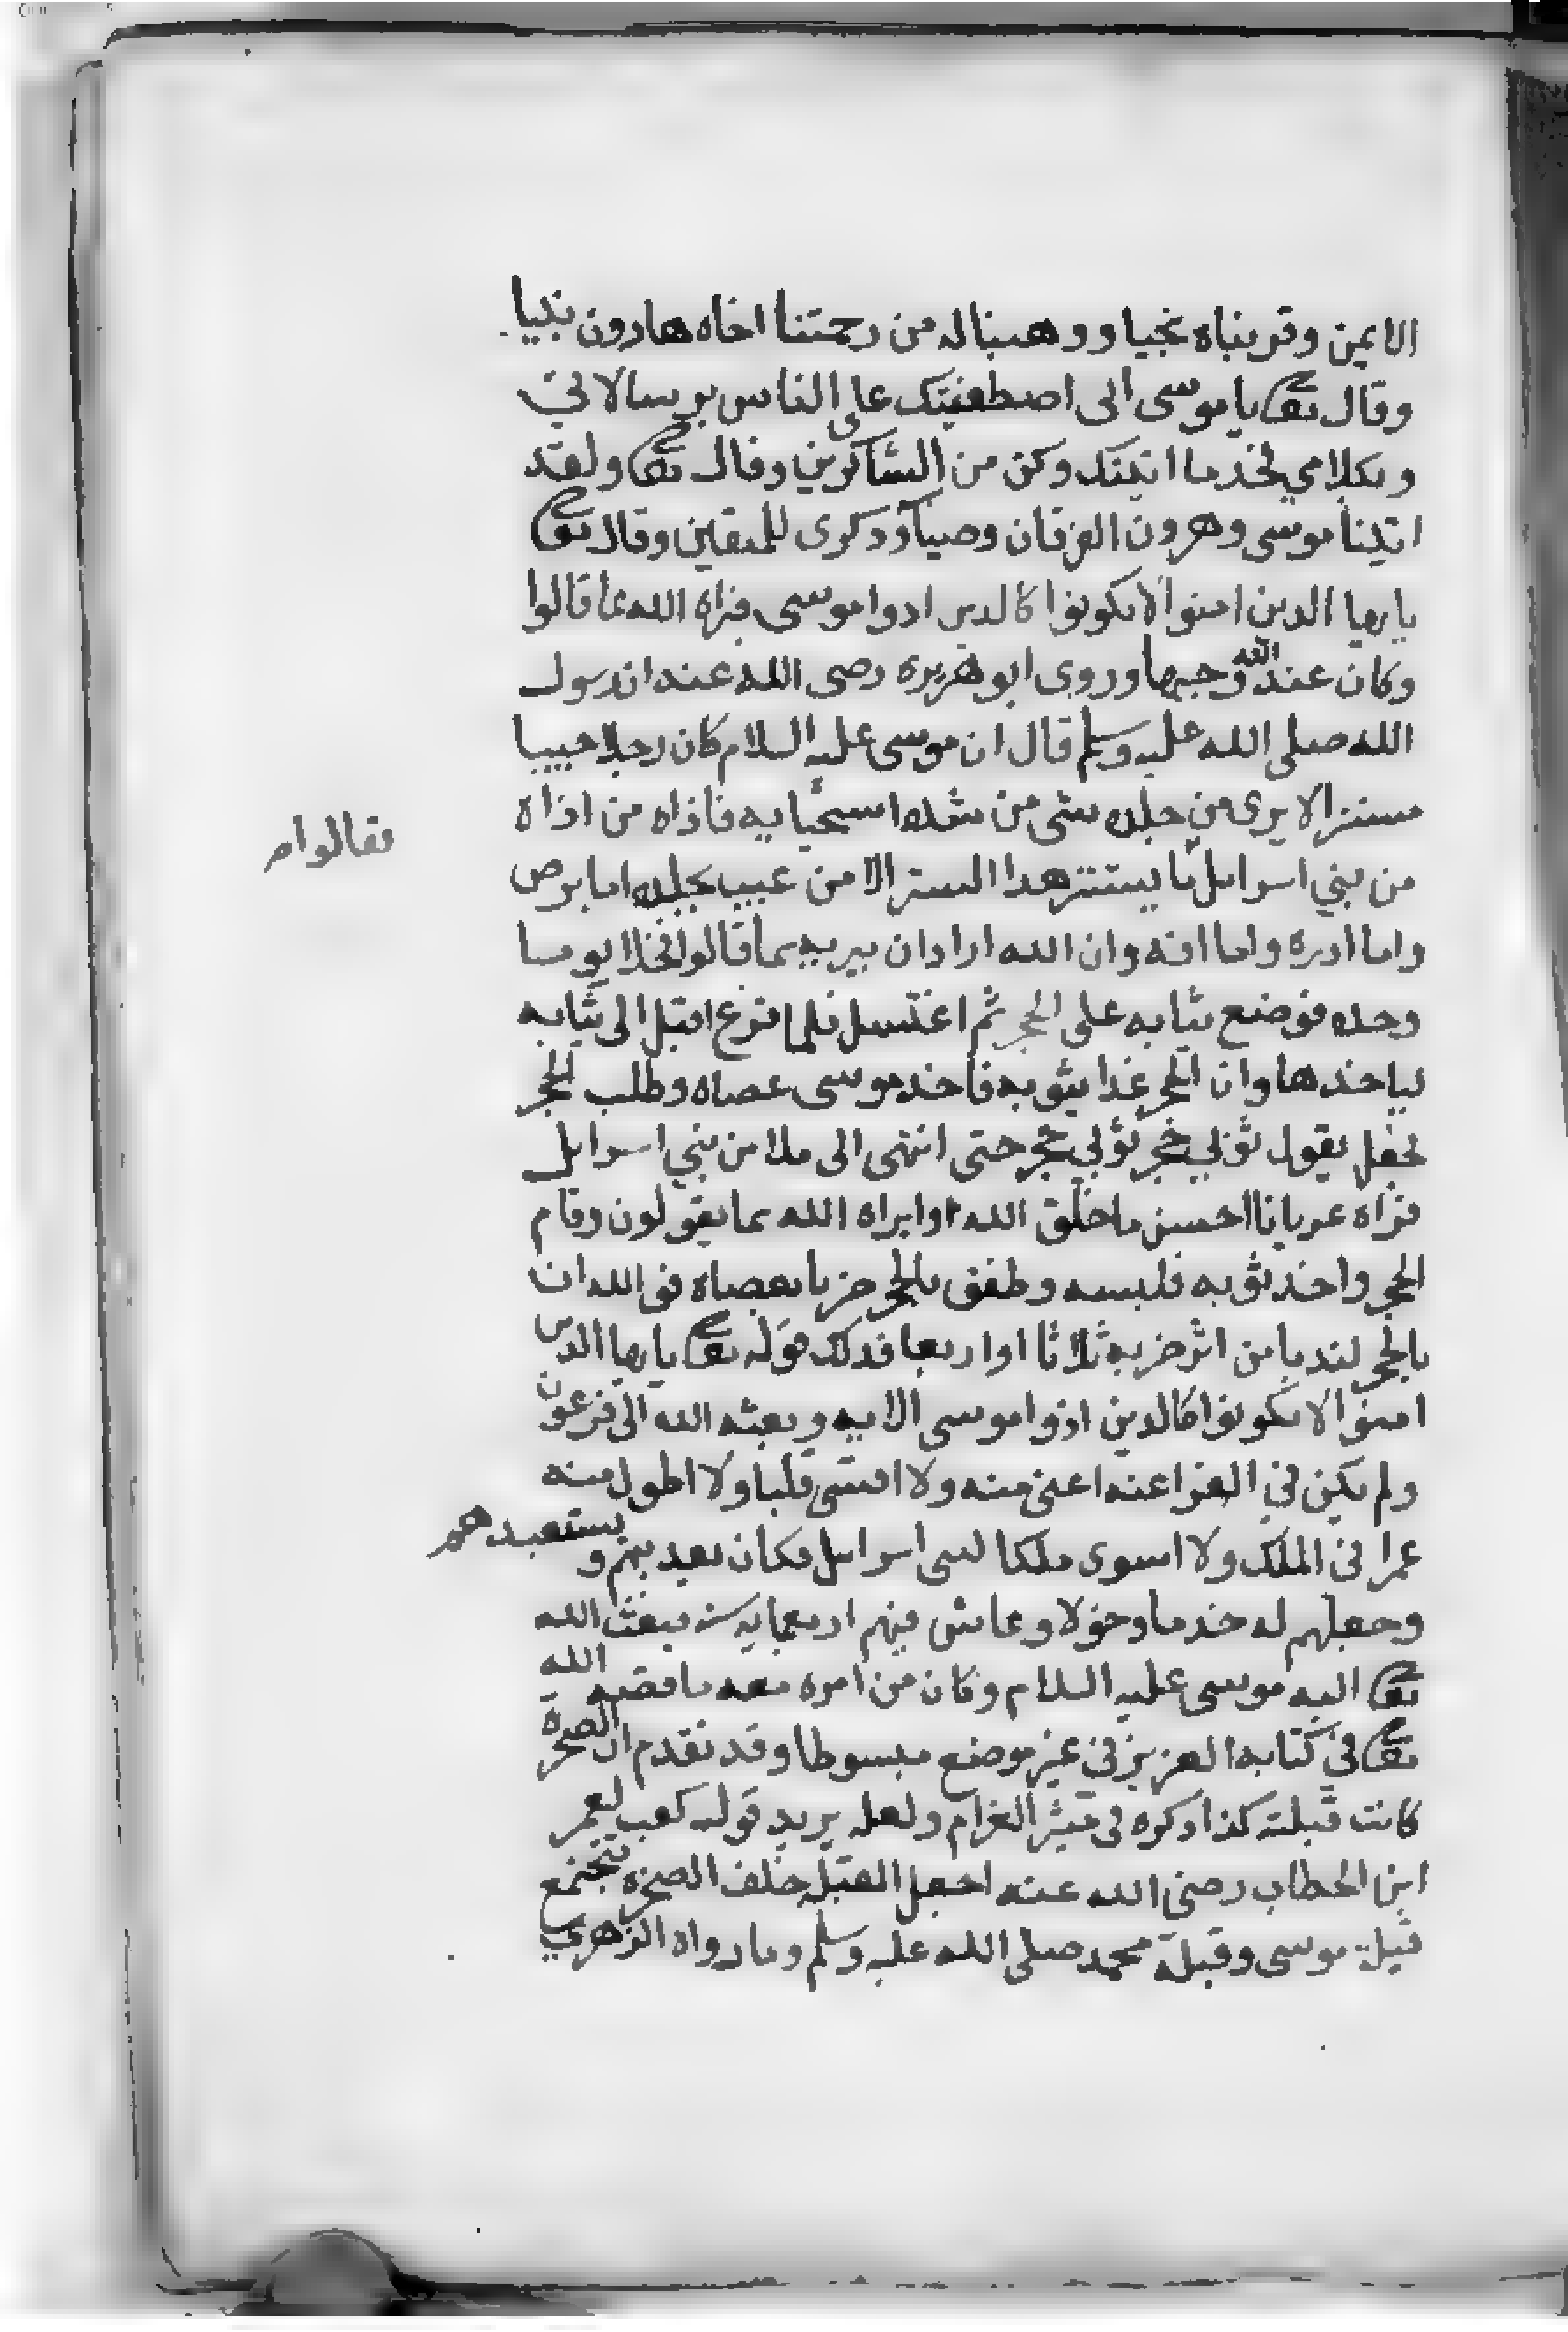 الايمن وقربناه نجيا ووهبنا له من رحمتنا اخاه هارون نبيا
وقال تعالى يا موسى انى اصطفيتك على الناس برسالاتي
وبكلامي فخذ ما اتيتك وكن من الشاكرين وقال تعالى ولقد
اتينا موسى وهرون الفرقان وضياء وذكرى للمتقين وقال تعالى
يايها الدين امنوا لا تكونوا كالدين ادوا موسى فبراه الله مما قالوا
وكان عند الله وجيها وروى ابو هريرة رضى الله عنه ان رسول
الله صلى الله عليه وسلم قال ان موسى عليه السلام كان رجلا حييا
مستترا لا يرى من جلده شى من شده استحيايه فاذاه من اذاه
من بني اسرايل ما يستتر هدا الستر الا من عيب بجلده اما برص
فقالوا م
واما ادره واما افه وان الله اراد ان يبريه مما قالوا فخلا يوما
وحده فوضع ثيابه على الحجر ثم اغتسل فلما فرغ اقبل الى ثيابه
لياخدها وان الحجر غدا بثوبه فاخد موسى عصاه وطلب الحجر
فجعل يقول ثوبي حجر ثوبي حجر حتى انتهى الى ملا من بني اسرايل
فراه عريانا احسن ما خلق الله وابراه الله مما يقولون وقام
الحجر واخد ثوبه فلبسه وطفق بالحجر ضربا بعصاه فوالله ان
بالحجر لندبا من اثر ضربه ثلاثا او اربعا فدلك قوله تعالى يايها الدين
امنوا لا تكونوا كالدين اذوا موسى الايه وبعثه الله الى فرعون
ولم يكن في الفراعنه اعتى منه ولا اقسى قلبا ولا اطول منه
عمرا في الملك ولا اسوى ملكا لبنى اسرايل فكان يعذبهم ويستعبدهم
وجعلهم له خدما وخولا وعاش فيهم اربعمايه سنه فبعث الله
تعالى اليه موسى عليه السلام وكان من امره معه ما قصه الله
تعالى في كتابه العزيز في غير موضع مبسوطا وقد تقدم ان الصخرة
كانت قبلته كذا دكره في مثير الغرام ولعله يريد قول كعب لعمر
ابن الخطاب رضى الله عنه اجعل القبلة خلف الصخرة فتجتمع
قبلة موسى وقبلة محمد صلى الله عليه وسلم وما رواه الزهري